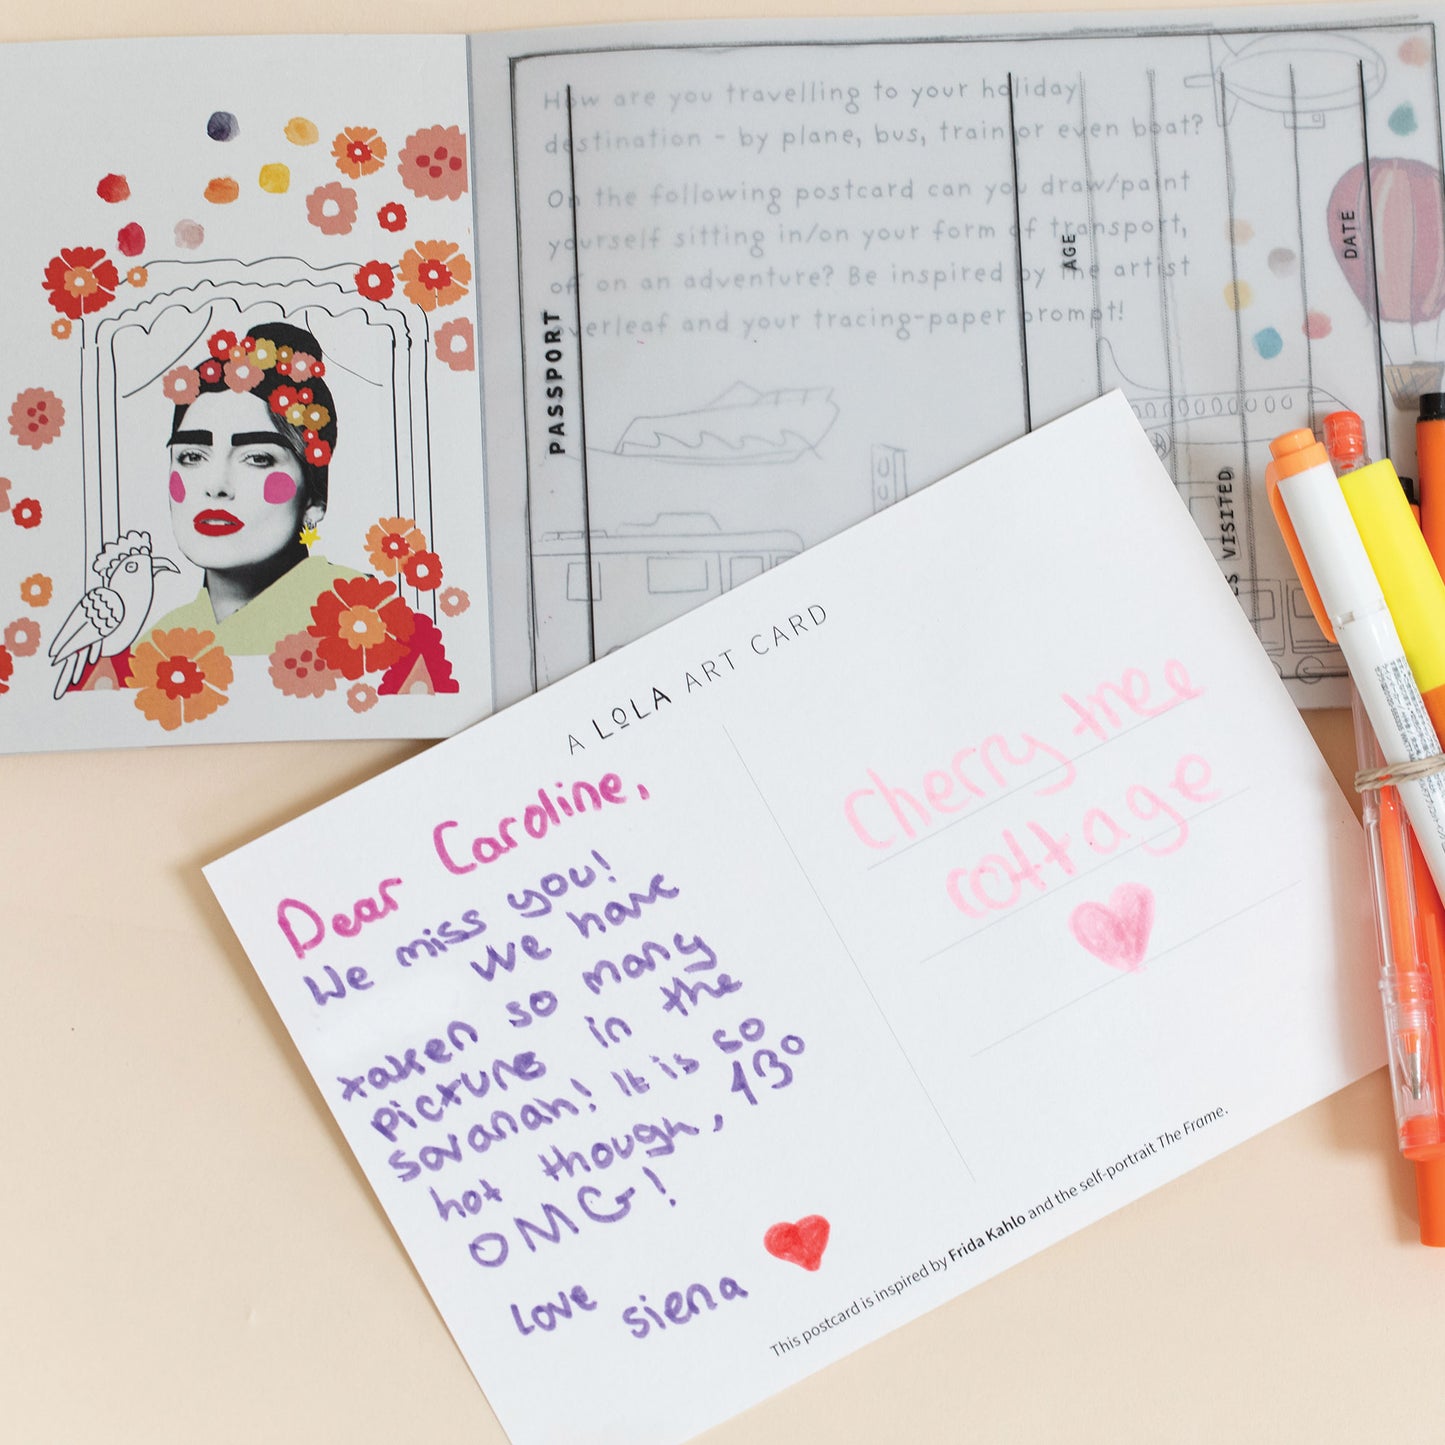 How are you travelling to your holiday
destination - by plane, bus, train or even boat?
On the following postcard can you draw/paint
yourself sitting in/on your form of transport,
off on an adventure? Be inspired by the artist
overleaf and your tracing-paper prompt!
PASSPORT
AGE
VISITED
DATE
A LOLA ART CARD
Dear Caroline,
We miss you!
We have
taken so many
picture in the
savanah! It is so
hot though, 43°
OMG!
Love
siena
Cherry tree
cottage
This postcard is inspired by Frida Kahlo and the self-portrait The Frame.